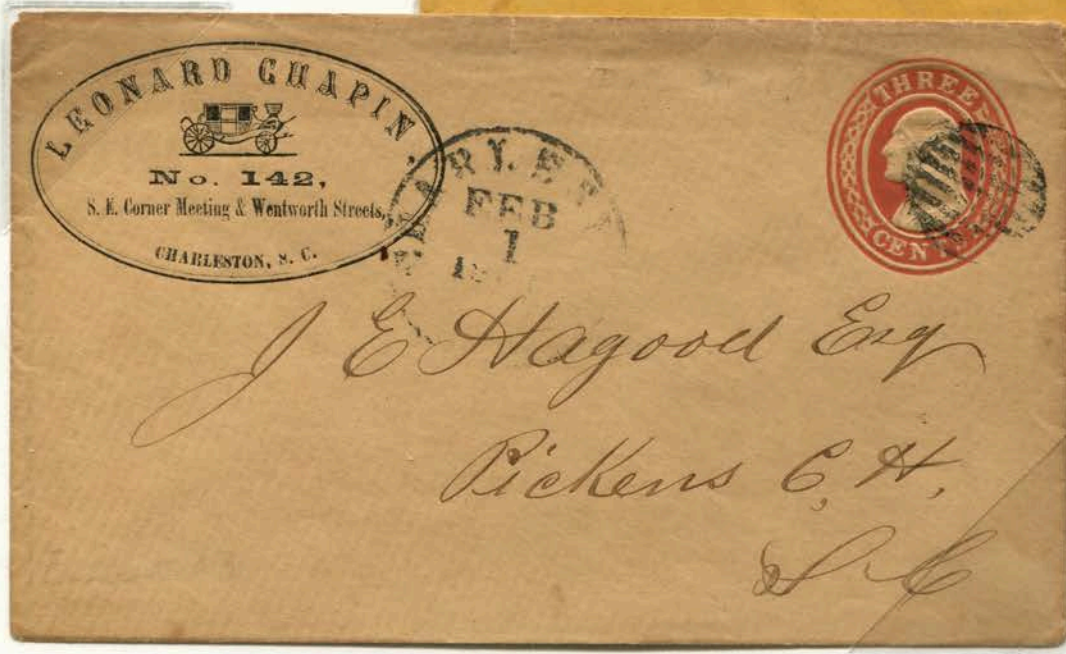 LEONARD CHAPIN,
No. 142,
S. E. Corner Meeting & Wentworth Streets,
CHARLESTON, S. C.
FEB
1
THREE
CENTS
J E Hagood Esq
Pickens C. H.
S C